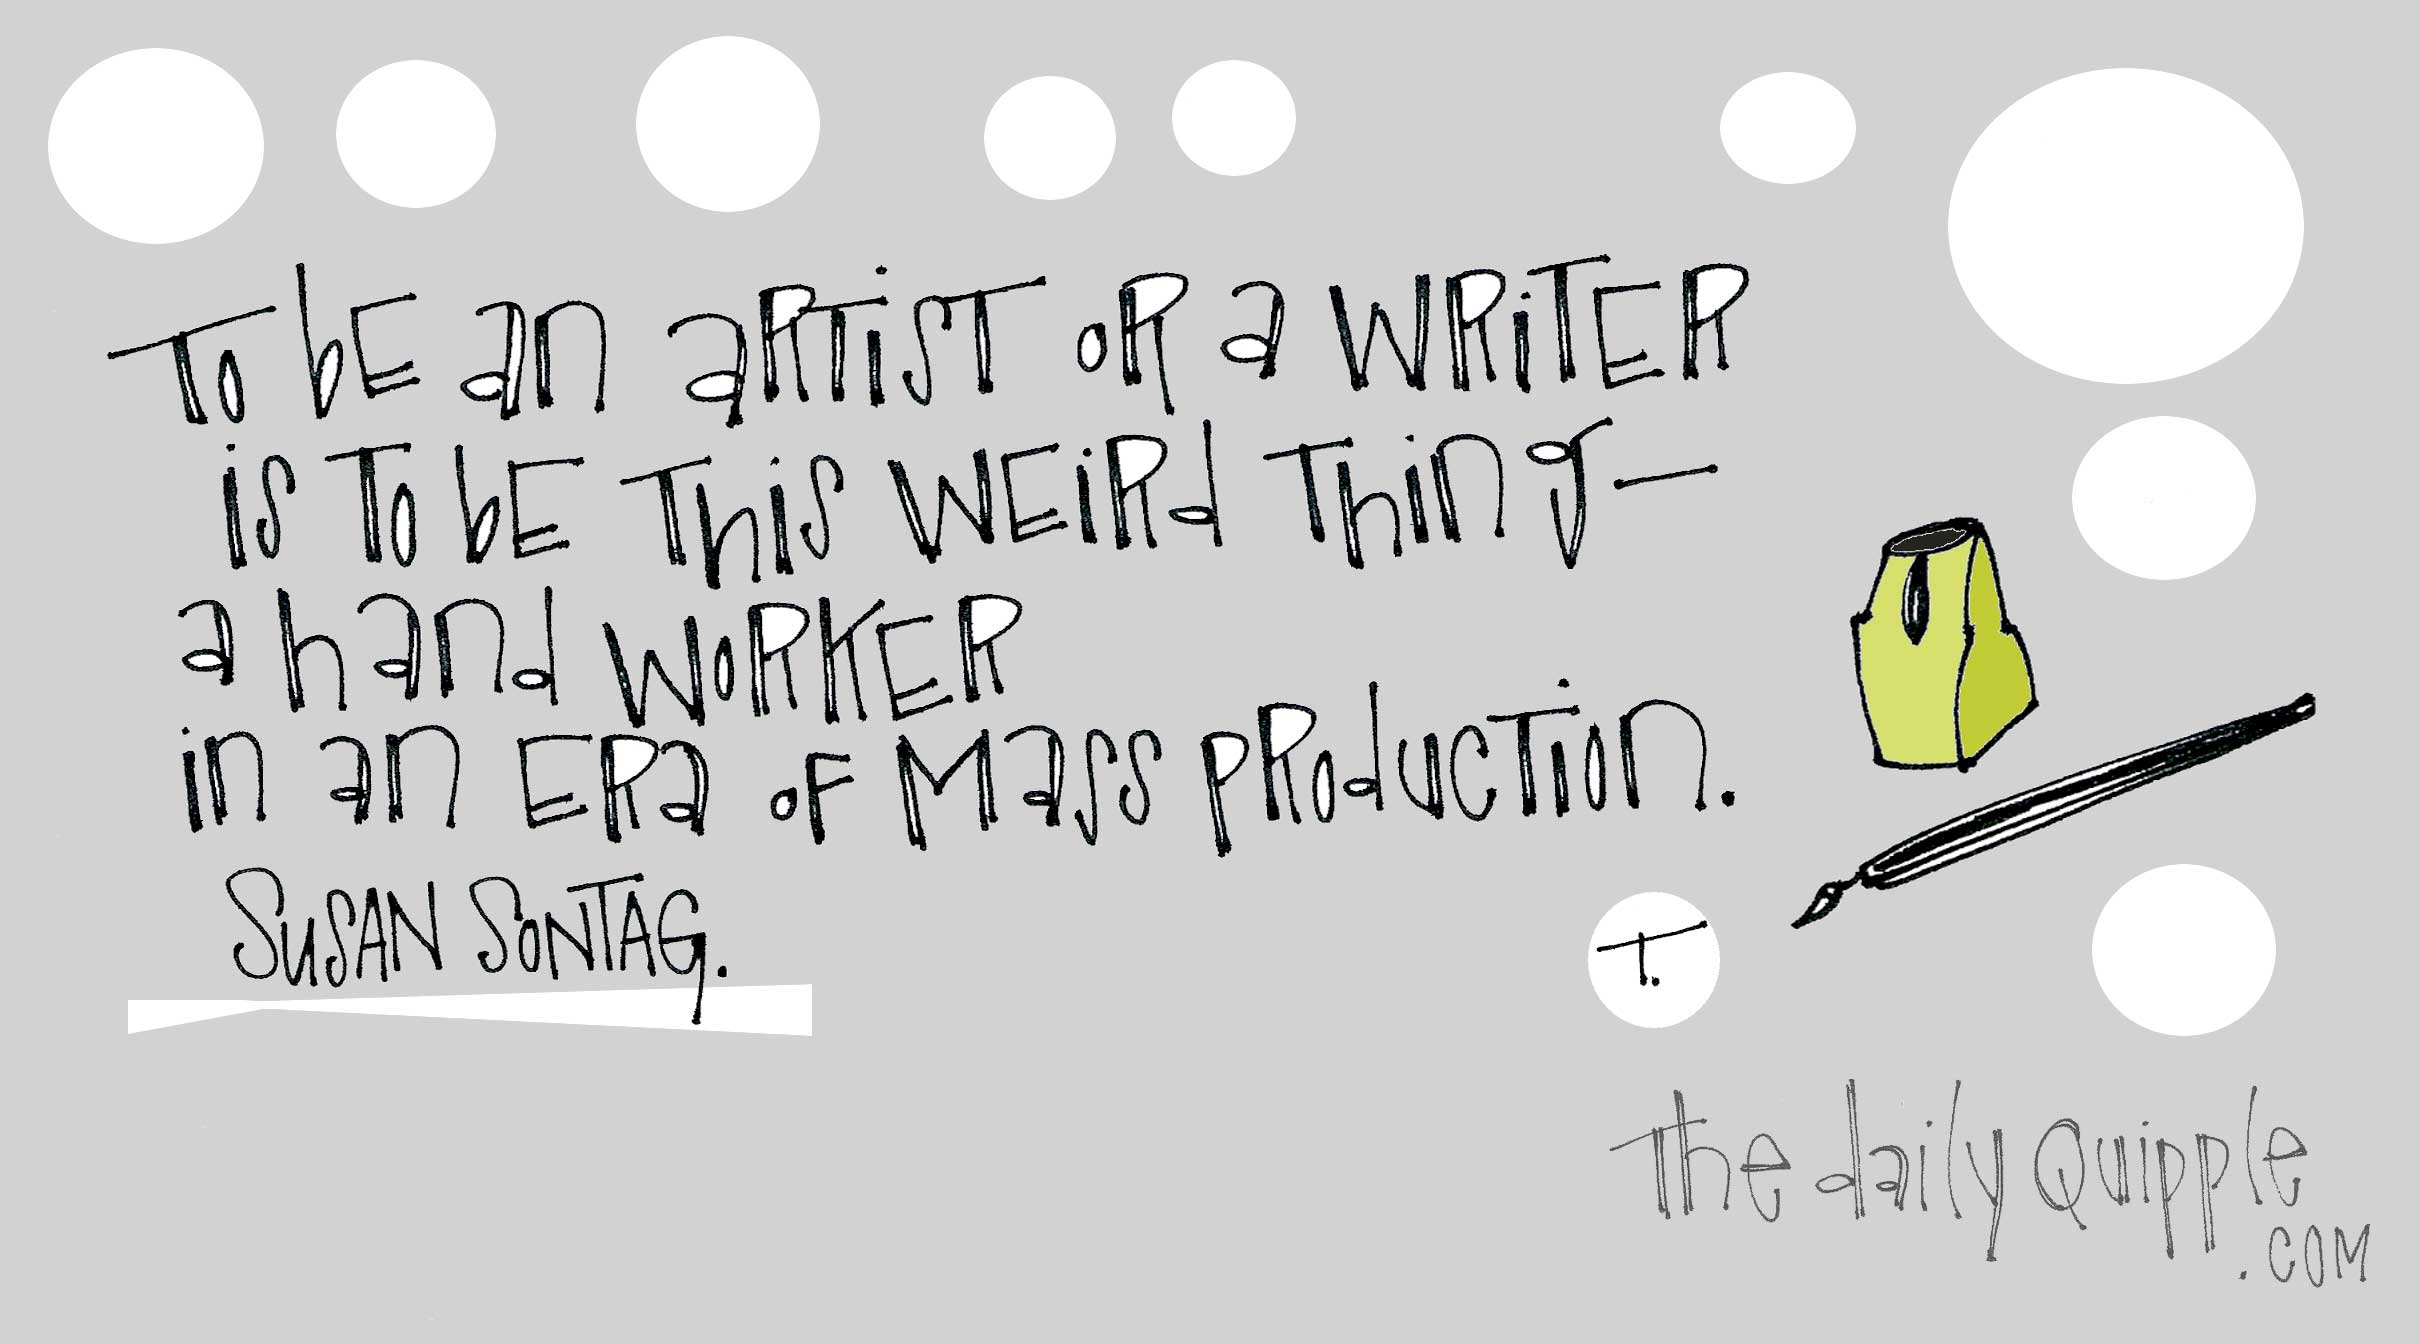 To be an artist or a writer
is to be this weird thing—
a hand worker
in an era of mass production.
Susan Sontag.
T.
The daily Quipple
.com